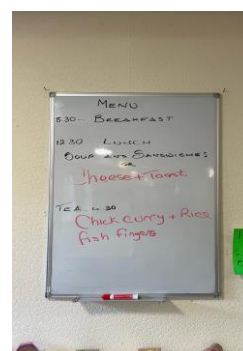 MENU
8.30 - BREAKFAST
12.30 LUNCH
SOUP AND SANDWICHES
OR
Cheese + Toast
TEA 4.30
Chick curry + Rice
fish fingers